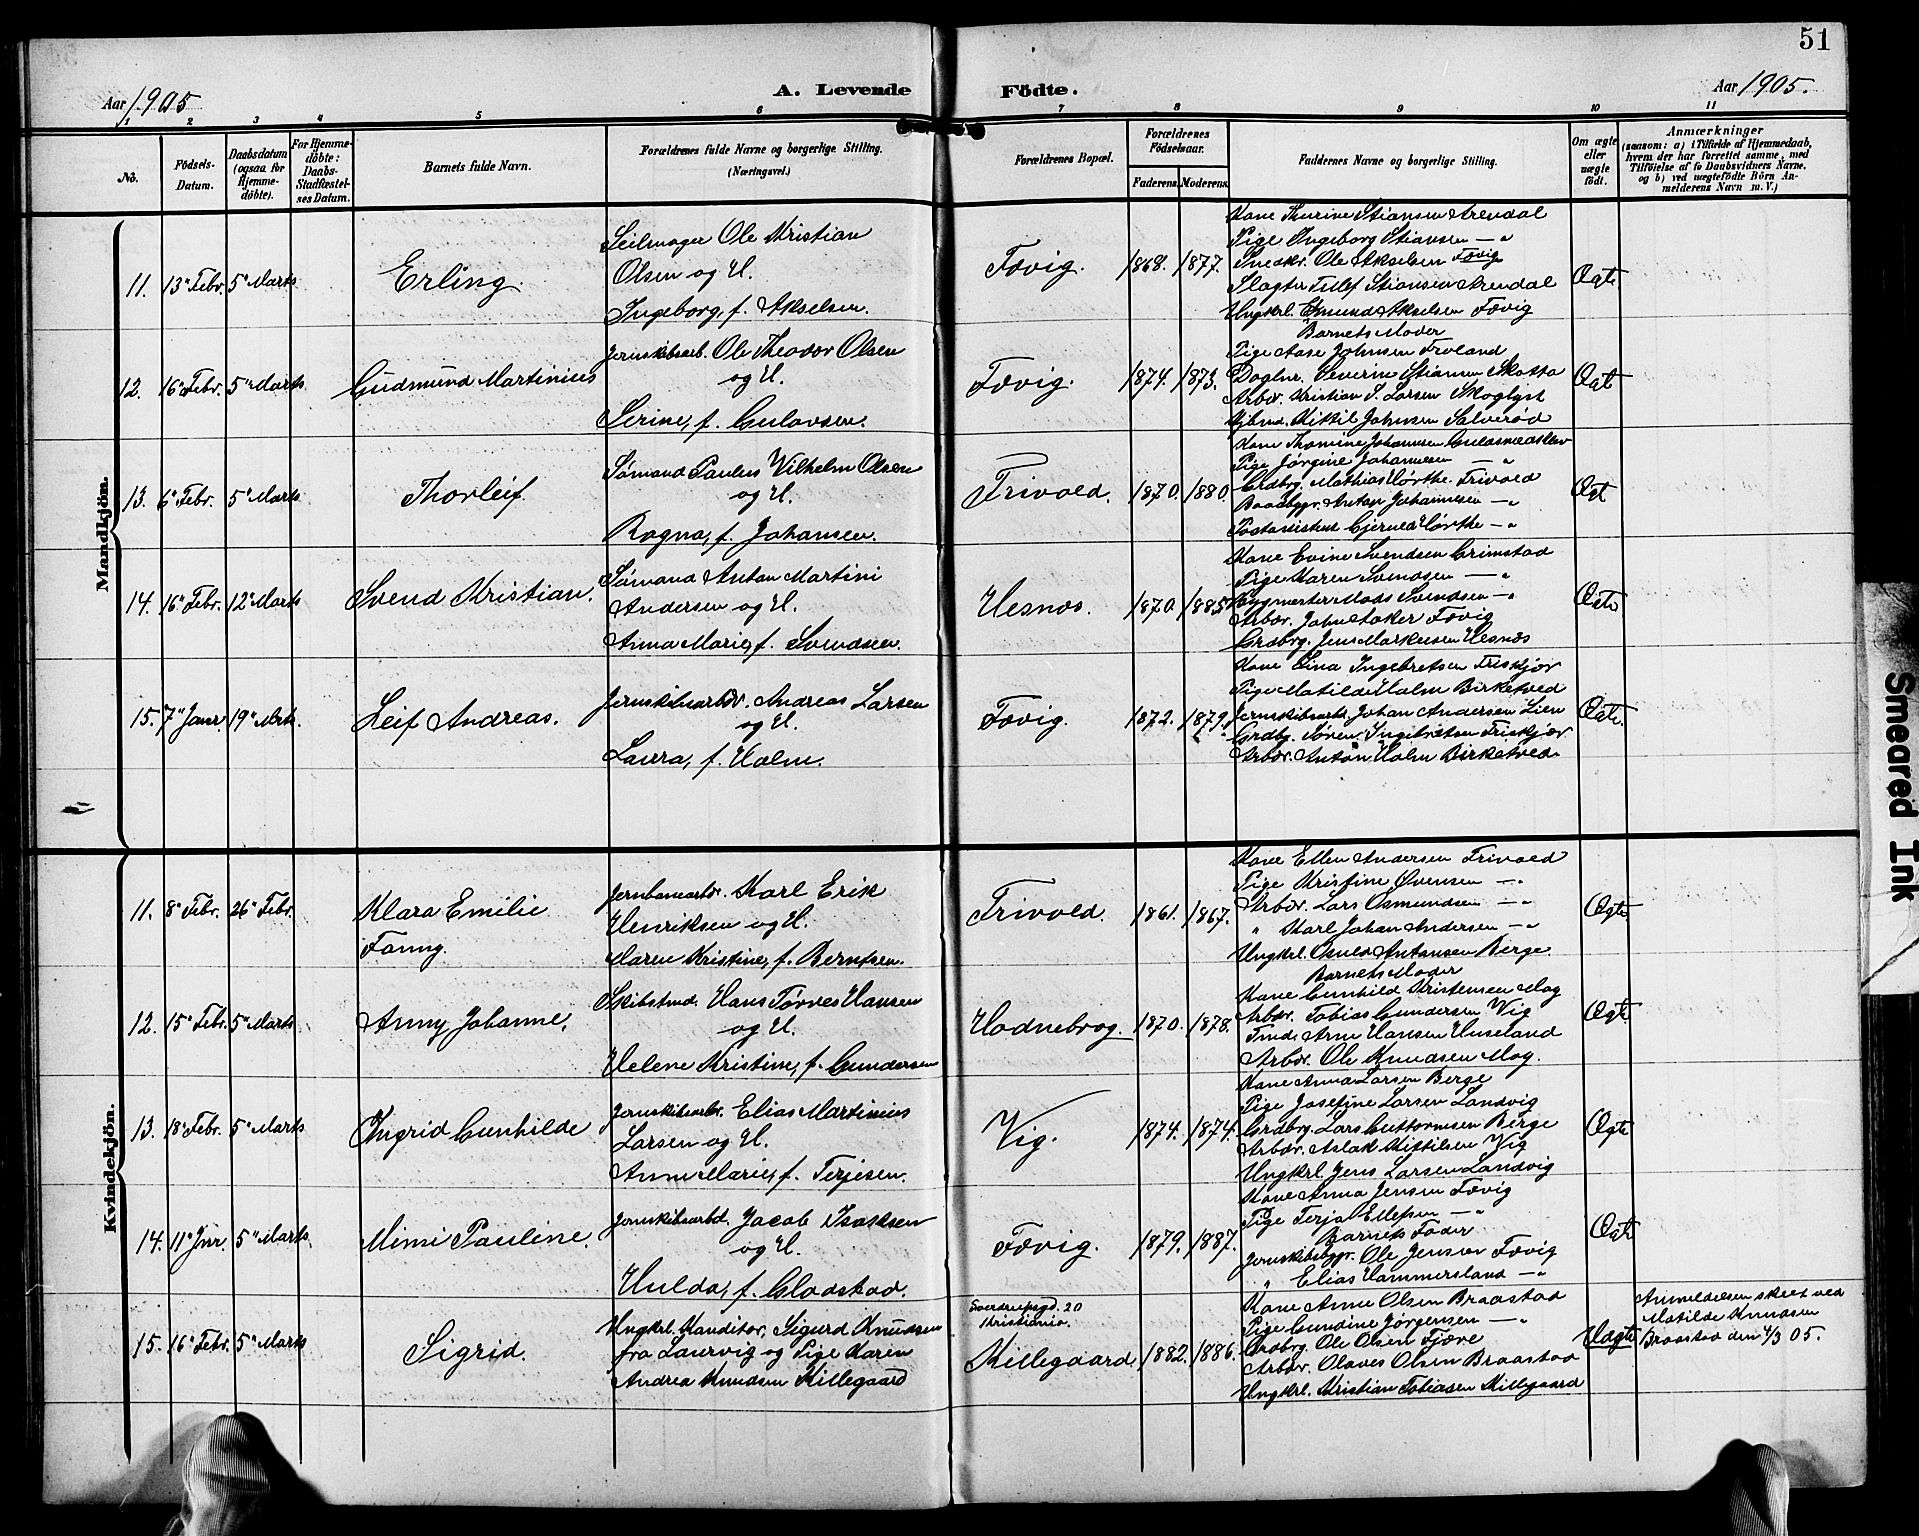 51
Aar 1905
A. Levende Födte.
Aar 1905.
1 2 3 4 5 6 7 8 9 10 11
No.
Födsels-
Datum.
Daabsdatum
(ogsaa for
Hjemme-
döbte).
For Hjemme-
döbte:
Daabs-
Stadfæstel-
ses Datum.
Barnets fulde Navn.
Forældrenes fulde Navne og borgerlige Stilling.
(Næringsvei.)
Forældrenes Bopæl.
Forældrenes
Födselsaar.
Faderens. Moderens.
Faddernes Navne og borgerlige Stilling.
Om ægte
eller
uægte
födt.
Anmærkninger
(saasom: a) i Tilfælde af Hjemmedaab,
hvem der har forrettet samme, med
Tilföielse af to Daabsvidners Navne,
og b) ved uægtefödte Börn An-
melderens Navn m. V.)
Mandkjön.
11. 13 Febr. 5 Marts
Erling.
Seilmager Ole Kristian
Olsen og H.
Ingeborg, f. Akselsen.
Fævig. 1868. 1877.
Kone Thurine Stiansen Arendal
Pige Ingeborg Stiansen — "
Snedkr. Ole Akselsen Fævig
Slagter Tellef Stiansen Arendal
Ungkrl. Osmund Akselsen Fævig
Ægte
12. 16 Febr. 5 Marts
Gudmund Martinius
Jernskibsarb. Ole Theodor Olsen
og H.
Serine, f. Gulovsen.
Fævig. 1874. 1873.
Barnets Moder
Pige Aase Johnsen Froland
Daglnr. Severin Stiansen
Arbdr. Kristian S. Larsen Skoglyst
Kittil Johnsen
Ægte
13. 6 Febr. 5 Marts
Thorleif
Sømand Paulus Vilhelm Olsen
og H.
Ragna, f. Johansen.
Frivold. 1870. 1880.
Kone Thomine Johannsen
Pige Jørgine Johannesen — "
Grdbrg. Mathias Hørthe. Frivold
Baadbygr. Anton Johannesen — "
Hørthe — "
Ægte
14. 16 Febr. 12 Marts
Svend Kristian.
Sømand Anton Martini
Andersen og H.
Anna Marie, f. Svendsen.
Hesnæs. 1870. 1885
Kone Evine Svendsen Grimstad
Pige Karen Svendsen — "
Bygmester Mads Svendsen — "
Arbdr. John Aaker Fævig
Grdbrg. Jens Markusen Hesnæs
Ægte
15. 7 Janr. 19 Mrts.
Leif Andreas.
Jernskibsarbdr. Andreas Larsen
og H.
Laura, f. Holm.
Fævig. 1872. 1879.
Kone Lina Ingebretsen Friskjær
Pige Matilde Holm Birketved
Jernskibsarb. Johan Andersen Lien
Grdbg. Søren Ingebretsen Friskjær
Arbdr. Anton Holm Birketved.
Ægte.
Kvindekjön.
11. 8 Febr. 26 Febr.
Klara Emilie
Fanny.
Jernbanearbdr. Karl Erik
Henriksen og H.
Maren Kristine, f. Berntsen.
Frivold. 1861. 1867.
Kone Ellen Andersen Frivold
Pige Kristine Evensen — "
Arbdr. Lars Osmundsen — "
" Karl Johan Andersen — "
Ungkrl. Osuld Antonsen Berge.
Ægte
12. 15 Febr. 5 Marts
Anny Johanne.
Skibstmd. Hans Tørres Hansen
og H.
Helene Kristine, f. Gundersen
Hodnebrog. 1870. 1878.
Barnets Moder
Kone Gunhild Kristensen Moy
Arbdr. Tobias Gundersen Vig
Tmd. Arne Hansen Huseland
Arbdr. Ole Knudsen Moy.
Ægte
13. 18 Febr. 5 Marts
Ingrid Gunhilde
Jernskibsarbr. Elias Martinius
Larsen og H.
Anne Marie, f. Terjesen.
Vig. 1874. 1874.
Kone Anna Larsen Berge
Pige Josefine Larsen Landvig
Grdbrg. Lars Guttormsen Berge
Arbdr. Aslak Kittilsen Vig
Ungkrl. Jens Larsen Landvig
Ægte
14. 11 Jnr. 5 Marts
Mimi Pauline.
Jernskibsarbd. Jacob Isaksen
og H.
Hulda, f. Gladstad.
Fævig. 1879. 1887.
Kone Anna Jensen Fævig
Pige Terja Ellefsen — "
Barnets Fader
Jernskibsbygr. Ole Jensen Fævig
" Elias Hammersland — "
Ægte
15. 16 Febr. 5 Marts
Sigrid.
Ungkrl. Konditor, Sigurd Knudsen
fra Laurvig og Pige Karen
Andrea Knudsen Killegaard
Sverdrupsgd. 20
Kristiania.
Killegaard. 1882. 1886.
Kone Anne Olsen Braastad
Pige Gundine Jørgensen — "
Grdbrg. Ole Olsen Fjære
Arbdr. Olaves Olsen Braastad
Ungkrl. Kristian Tobiasen Killegaard
Uægte
Anmeldelsen skeet ved
Matilde Knudsen
Braastad den 4/3 05.
Smeared Ink